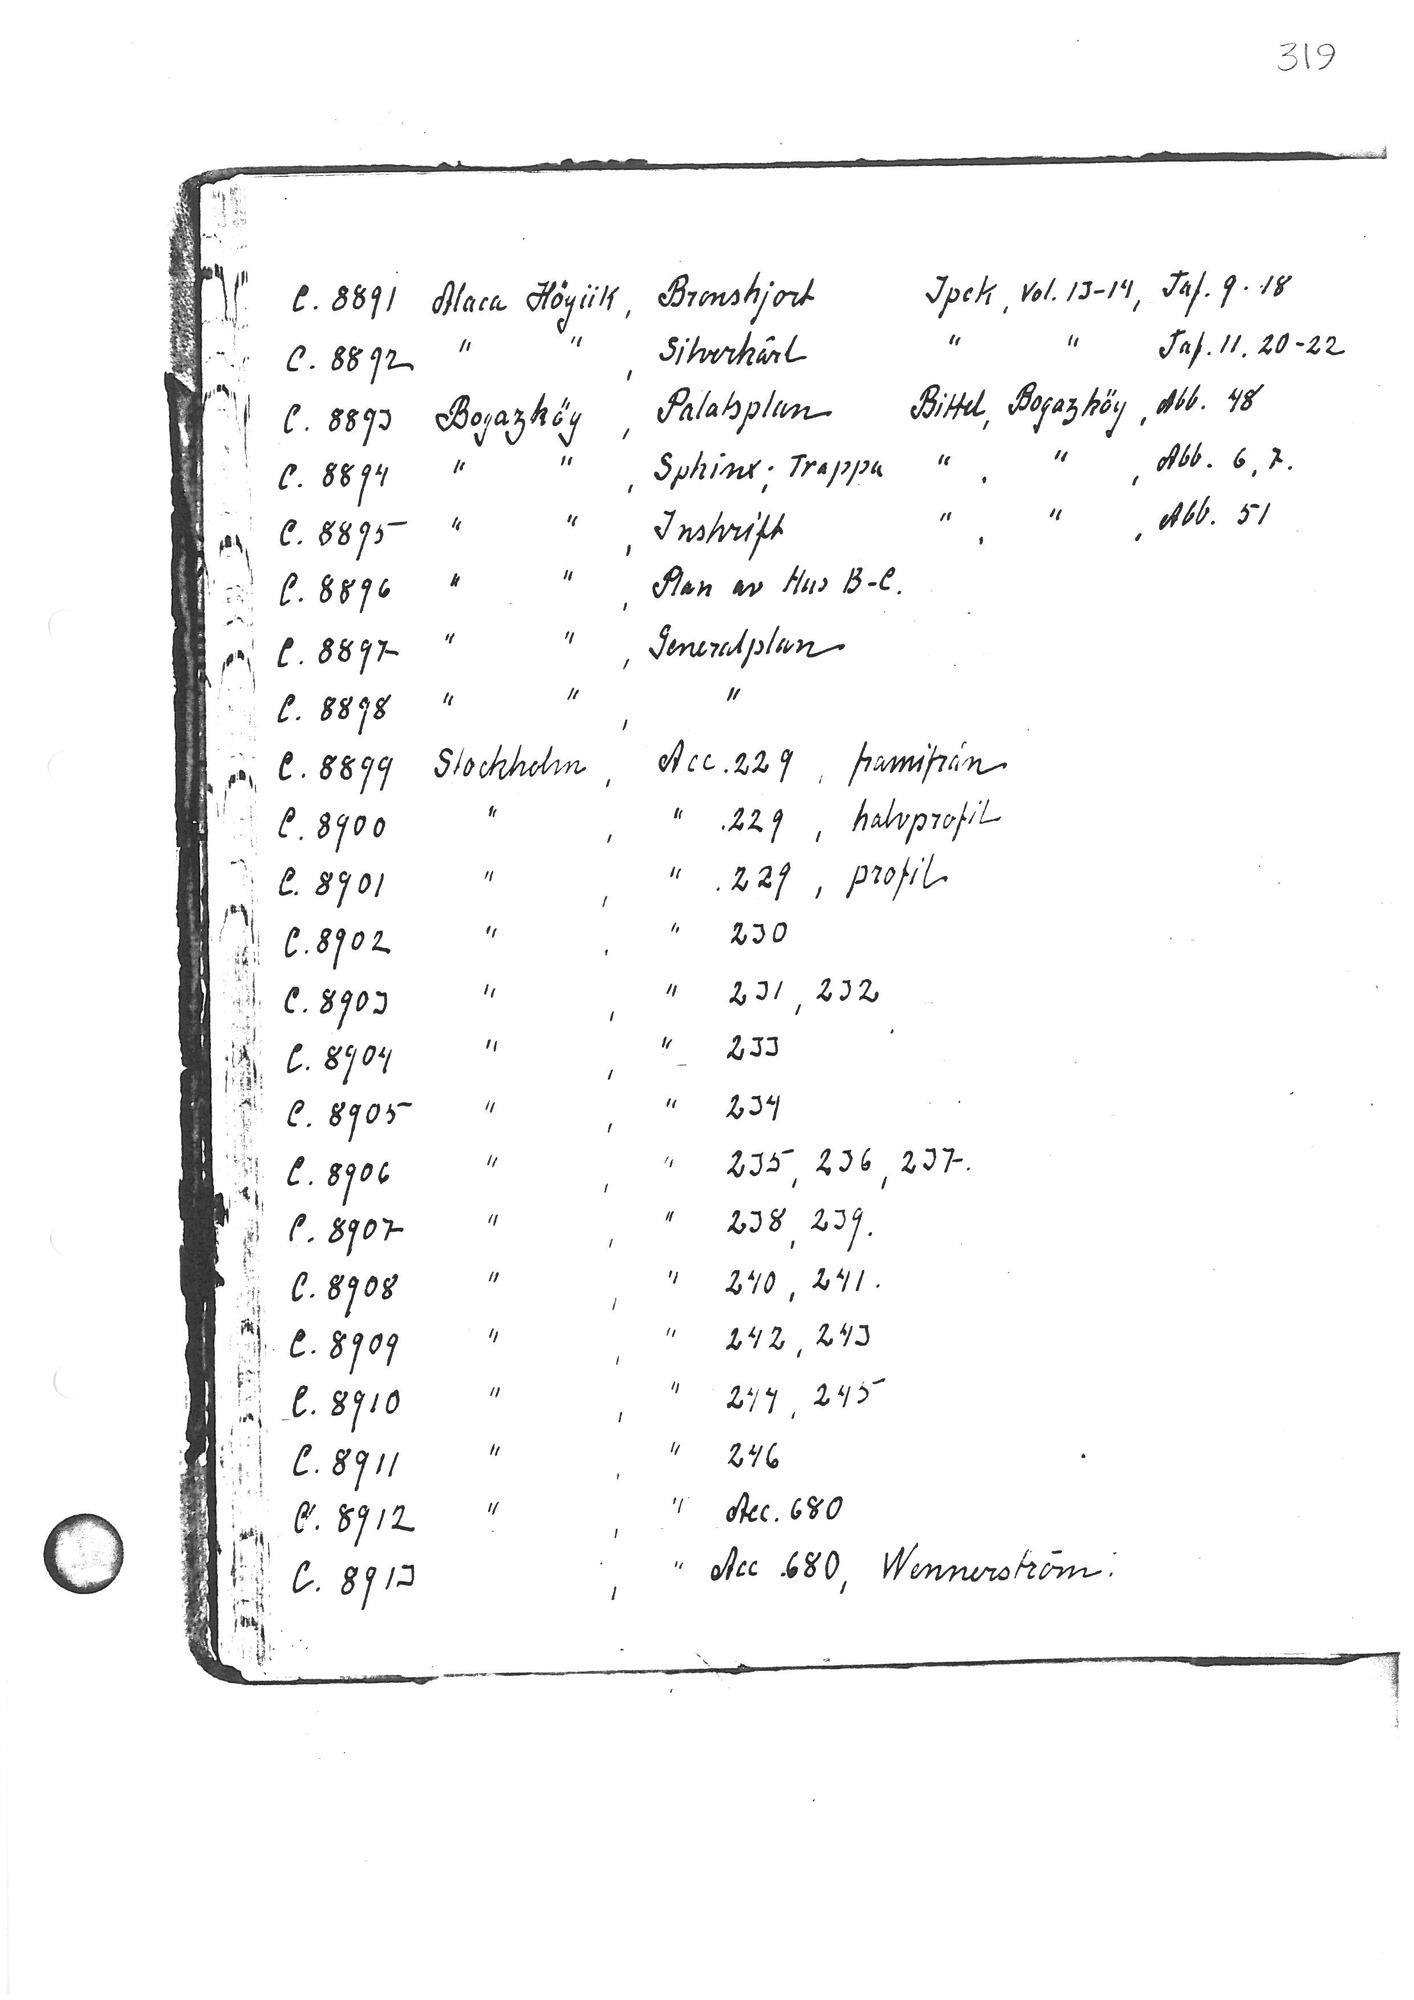 319
C. 8891 Alaca Höyük, Bronshjort Ipek, vol. 13-14, Taf. 9. 18
C. 8892 " " , Silverkärl " " Taf. 11. 20-22
C. 8893 Bogazköy , Palatsplan Bittel, Bogazköy, Abb. 48
C. 8894 " " , Sphinx; Trappa " , " , Abb. 6, 7.
C. 8895 " " , Inskrift " , " , Abb. 51
C. 8896 " " , Plan av Hus B-C.
C. 8897 " " , Generalplan
C. 8898 " " , "
C. 8899 Stockholm , Acc. 229 , framifrån
C. 8900 " , " .229 , halvprofil
C. 8901 " , " .229 , profil
C. 8902 " , " 230
C. 8903 " , " 231, 232
C. 8904 " , " 233
C. 8905 " , " 234
C. 8906 " , " 235, 236, 237.
C. 8907 " , " 238, 239.
C. 8908 " , " 240, 241.
C. 8909 " , " 242, 243
C. 8910 " , " 244, 245
C. 8911 " , " 246
C. 8912 " , " Acc. 680
C. 8913 , " Acc .680, Wennerström.